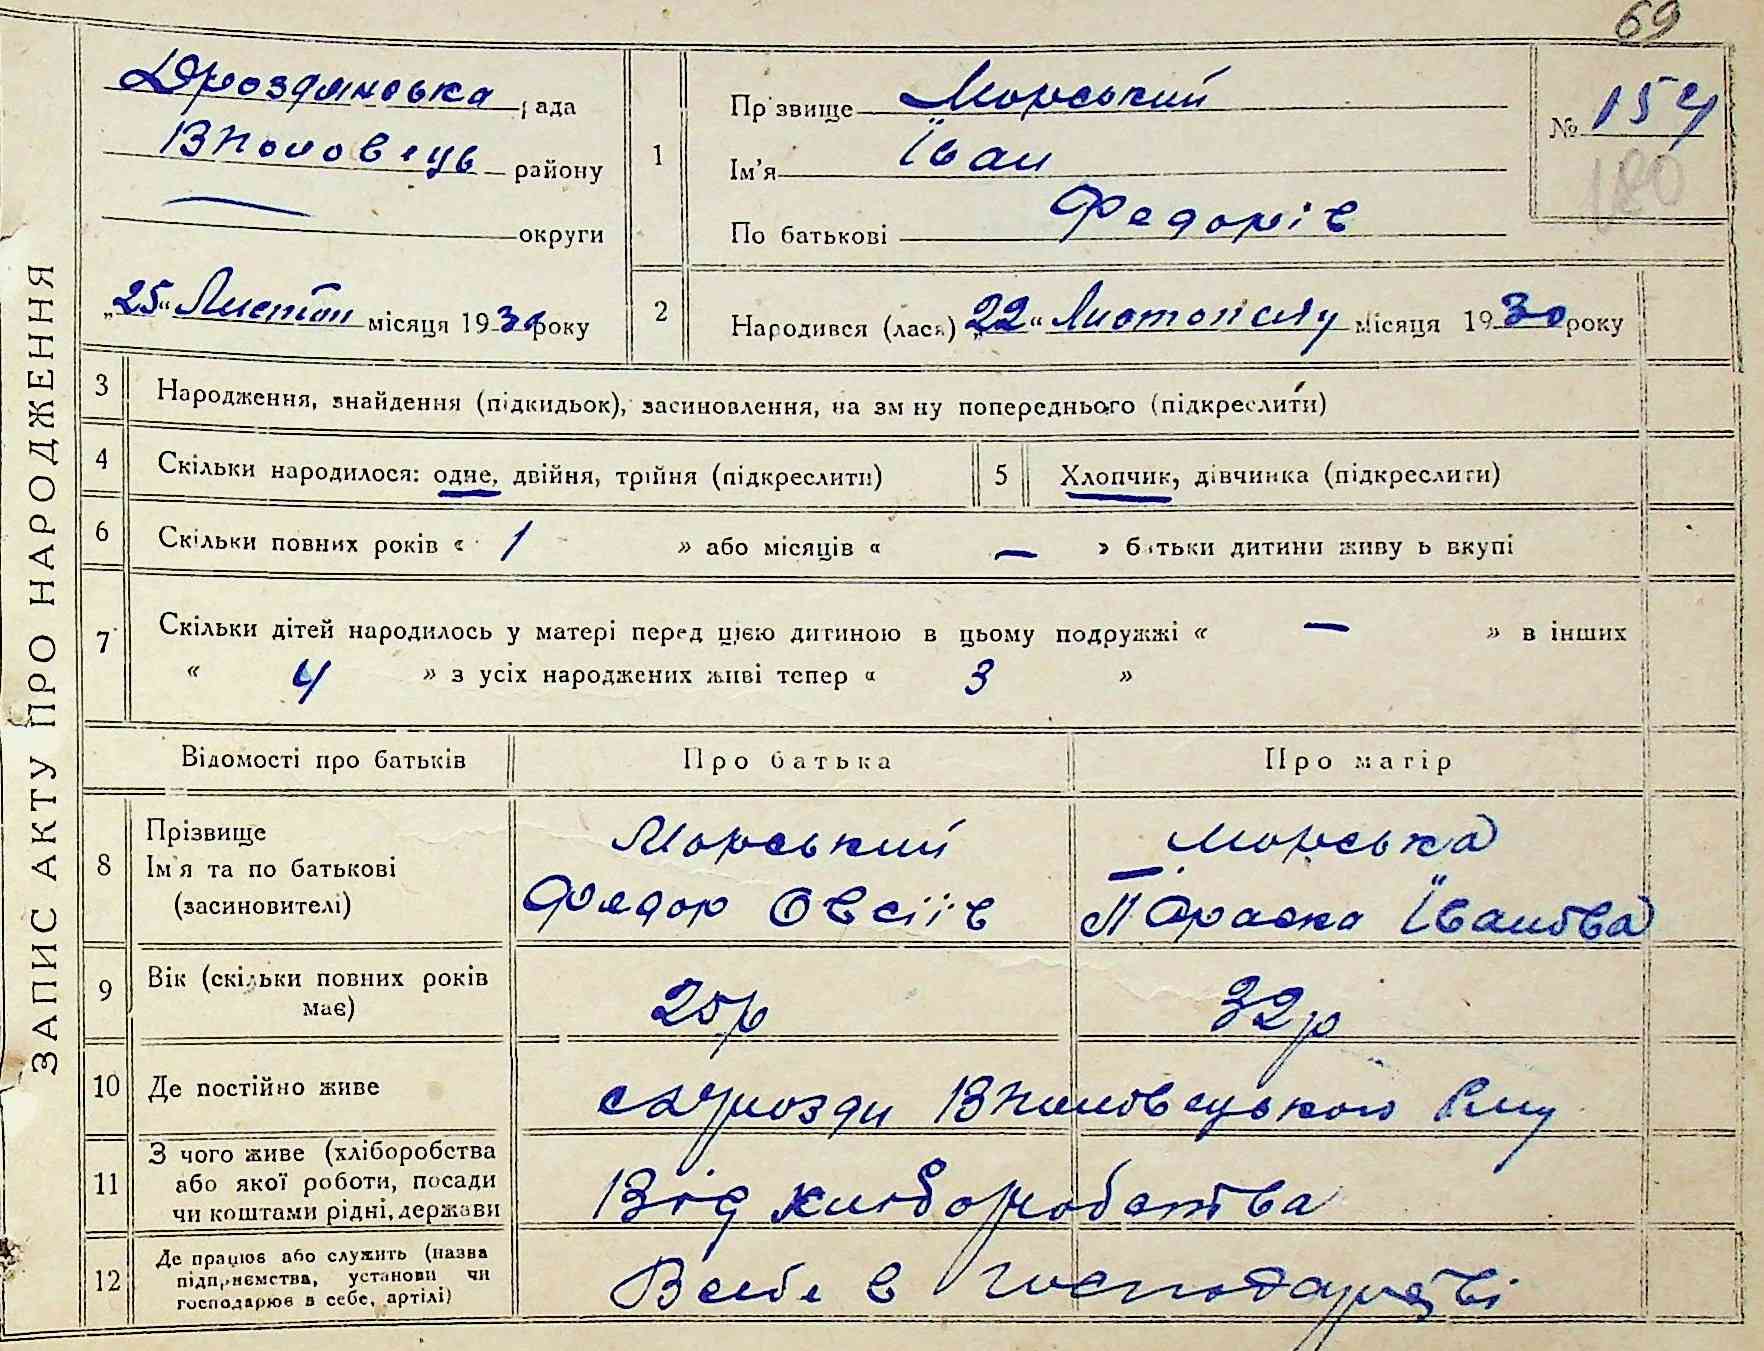 69
Дроздянська рада
ВПоловець району
округи
„25“ Листоп місяця 1930 року
1
Пр звище Морський
Ім'я Іван
По батькові Федорів
№ 154
180
2
Народився (лася) „22“ Листопаду місяця 1930 року
ЗАПИС АКТУ ПРО НАРОДЖЕННЯ
3 Народження, знайдення (підкидьок), засиновлення, на зм ну попереднього (підкреслити)
4 Скільки народилося: одне, двійня, трійня (підкреслити)
5 Хлопчик, дівчинка (підкреслити)
6 Скільки повних років « 1 » або місяців « — » батьки дитини живу ь вкупі
7 Скільки дітей народилось у матері перед цією дитиною в цьому подружжі « — » в інших
« 4 » з усіх народжених живі тепер « 3 »
Відомості про батьків Про батька Про матір
8 Прізвище Морський Морська
Ім'я та по батькові
(засиновителі) Федор Овсіїв Параска Іванова
9 Вік (скільки повних років
має) 25р 32р
10 Де постійно живе с Дрозди ВПоловецького Р-ну
11 З чого живе (хліборобства
або якої роботи, посади
чи коштами рідні, держави Від хліборобства
12 Де працює або служить (назва
підприємства, установи чи
господарює в себе, артілі) В себе в господарстві